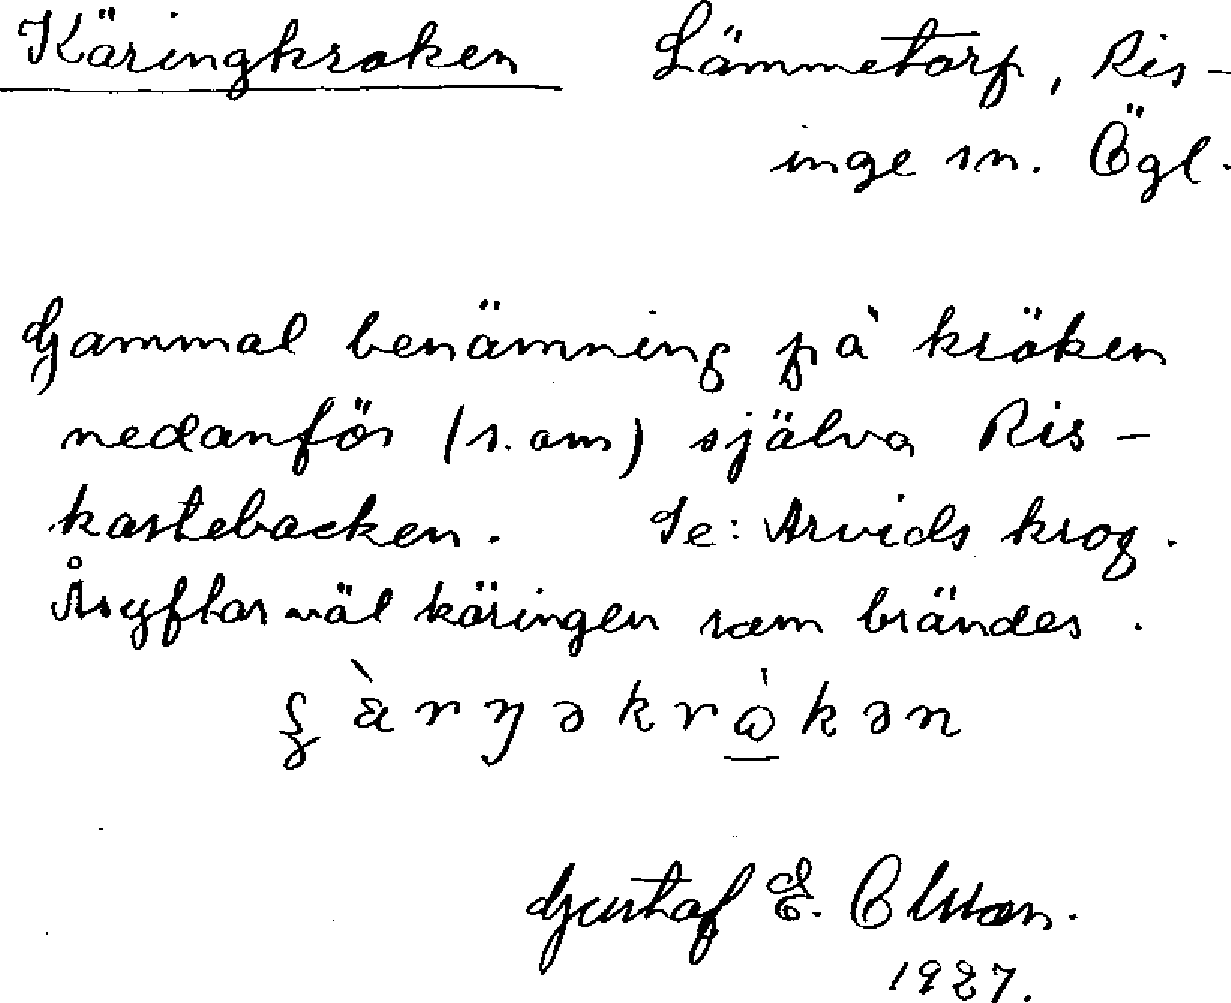 Käringkroken Lämmetorp, Ris-
inge sn. Ögl.
Gammal benämning på kröken
nedanför (s. om) själva Ris-
kastebacken. Se: Arvids krog.
Åsyftar väl käringen som brändes.
1927.
Gustaf E. Olsson.